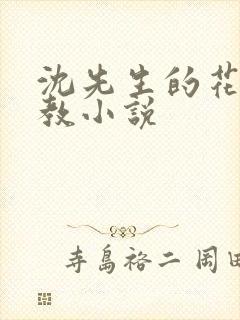 沈先生的花
教小说
寺島裕二 岡田